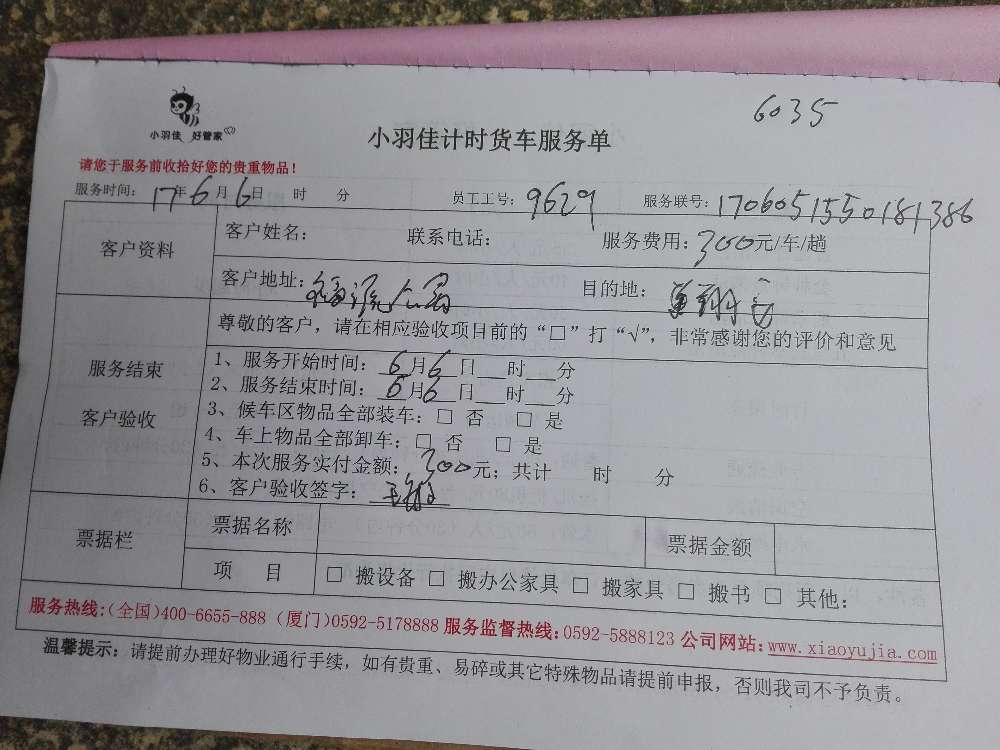 6035
小羽佳 好管家
小羽佳计时货车服务单
请您于服务前收拾好您的贵重物品！
服务时间：17年6月6日 时 分 员工工号：9629 服务联号：1706051550181386
客户资料
客户姓名： 联系电话： 服务费用：300元/车/趟
客户地址： 目的地：
服务结束
客户验收
尊敬的客户，请在相应验收项目前的“□”打“√”，非常感谢您的评价和意见
1、服务开始时间：6月6日__时__分
2、服务结束时间：6月6日__时__分
3、候车区物品全部装车：□ 否 □ 是
4、车上物品全部卸车：□ 否 □ 是
5、本次服务实付金额：300元；共计 时 分
6、客户验收签字：
票据栏
票据名称 票据金额
项 目 □ 搬设备 □ 搬办公家具 □ 搬家具 □ 搬书 □ 其他：
服务热线：(全国)400-6655-888 (厦门)0592-5178888 服务监督热线：0592-5888123 公司网站：www.xiaoyujia.com
温馨提示：请提前办理好物业通行手续，如有贵重、易碎或其它特殊物品请提前申报，否则我司不予负责。